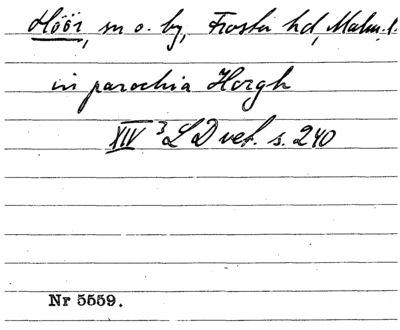 Höör, sn o. by, Frosta hd, Malm. l.
in parochia Horgh
XIV ³ LD vet. s. 240
Nr 5559.